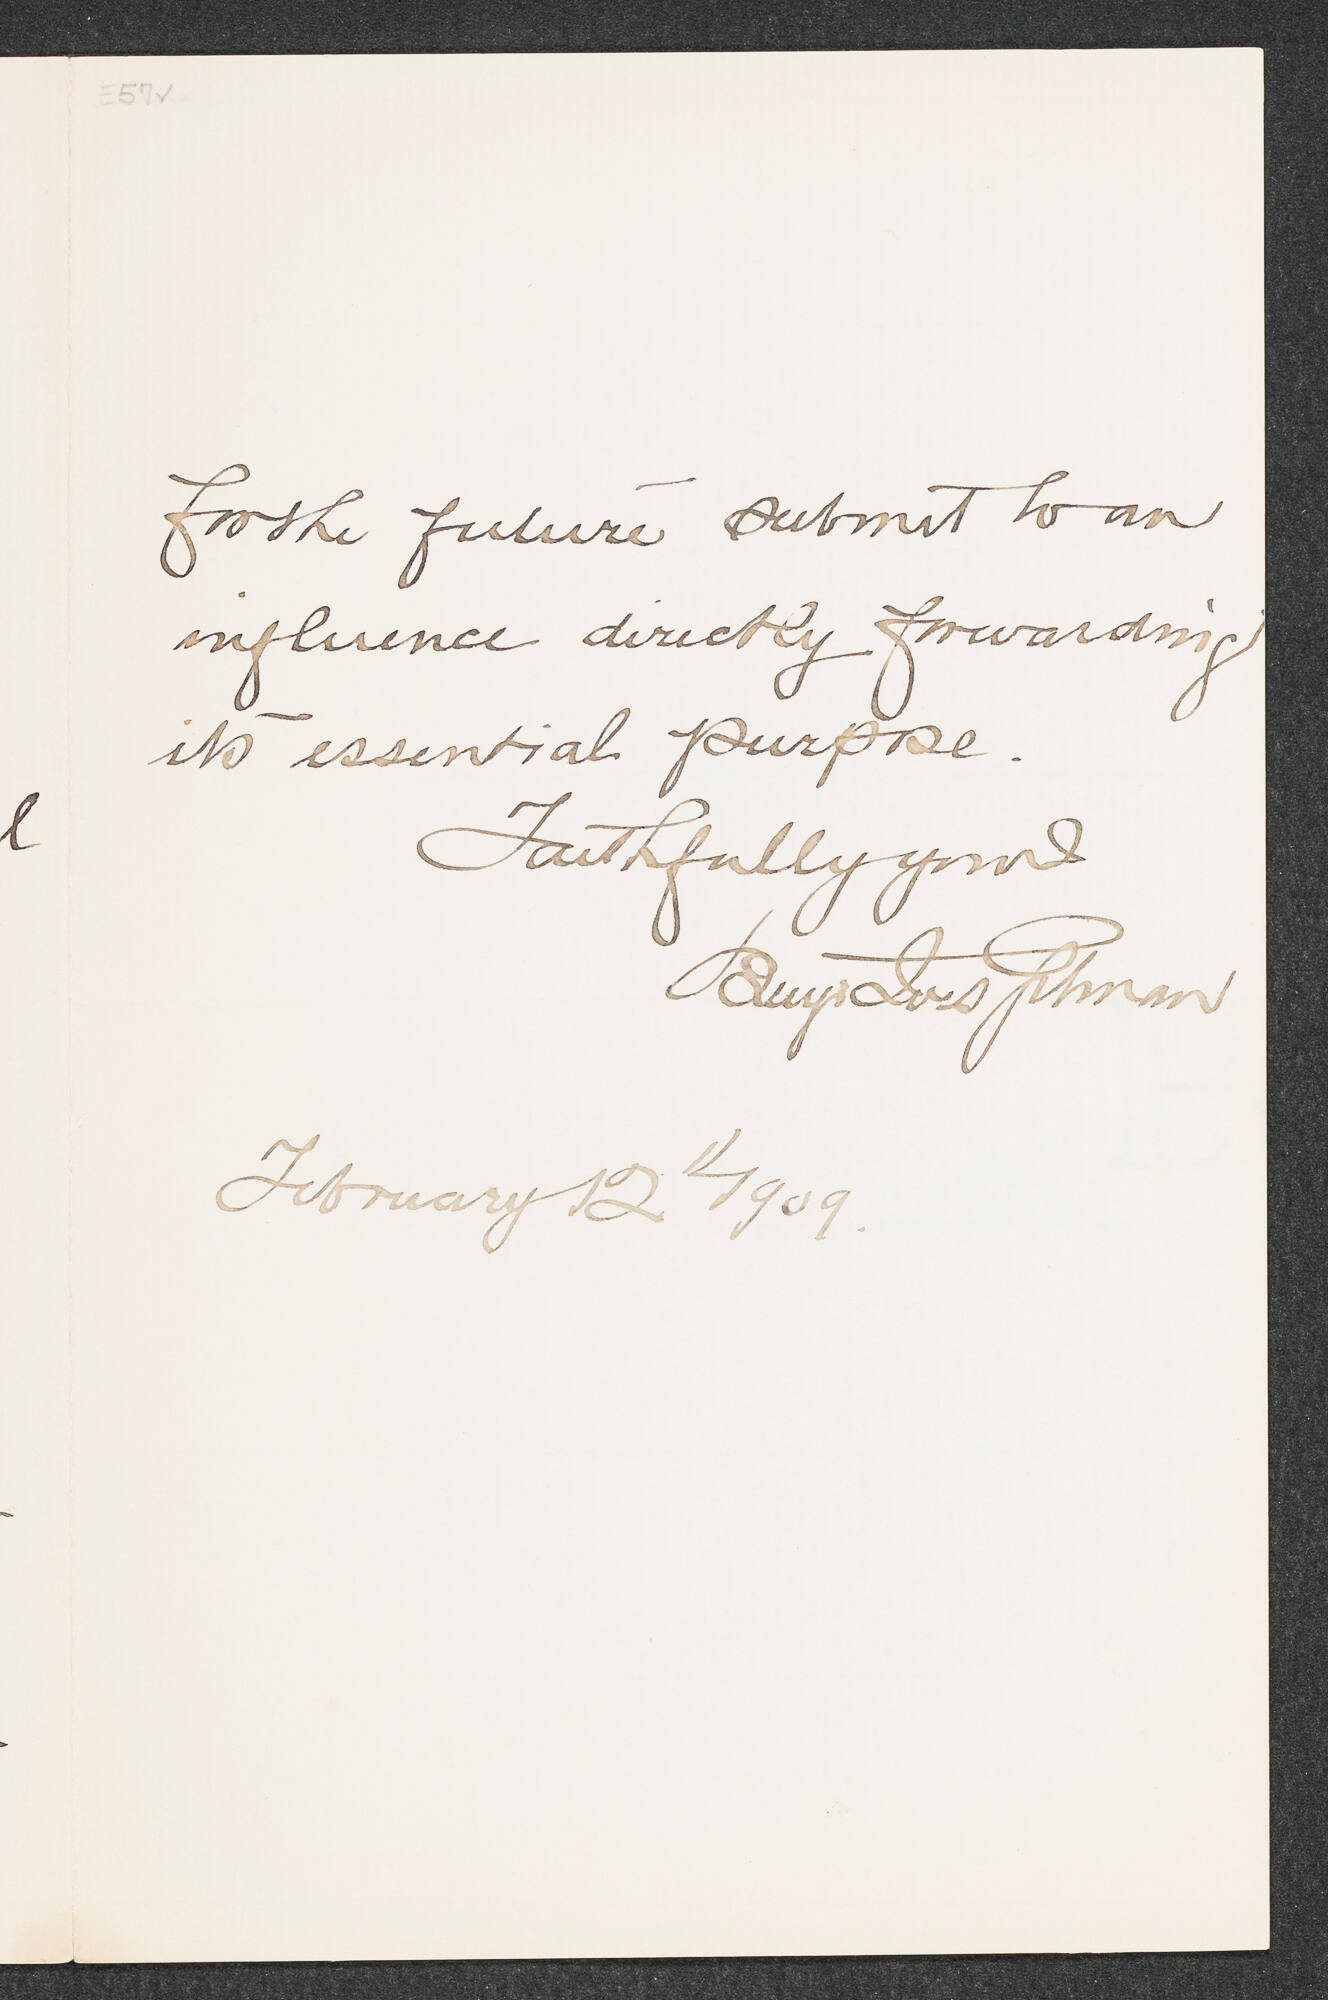 E57v
for the future submit to an
influence directly forwarding
its essential purpose.
Faithfully yours
Benj: Ives Gilman
February 12th 1909.